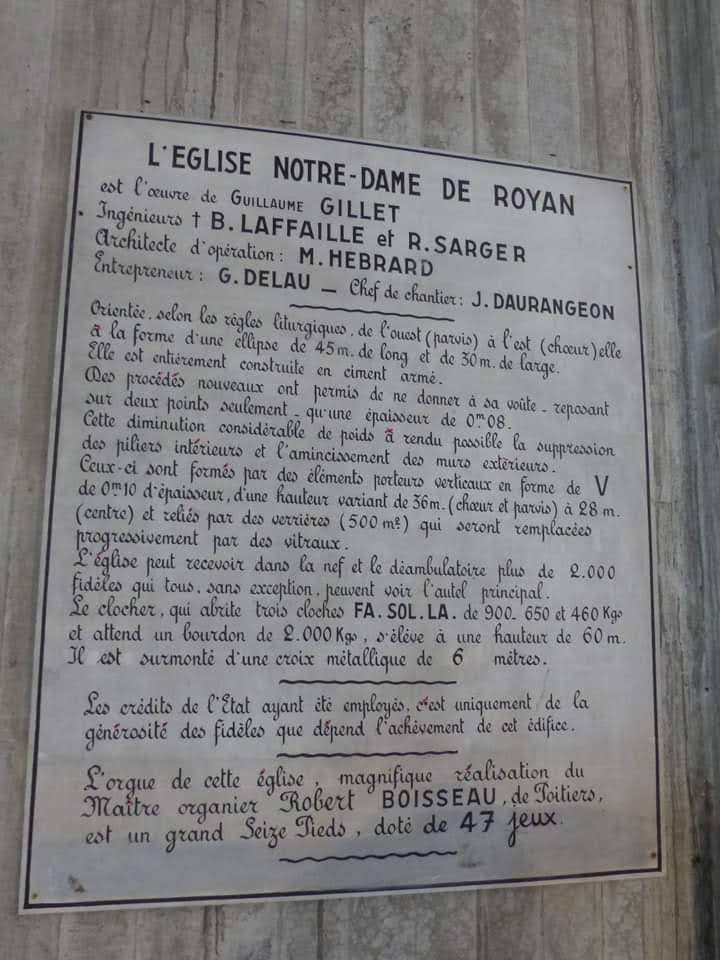 L'EGLISE NOTRE-DAME DE ROYAN
est l'œuvre de GUILLAUME GILLET
Ingénieurs † B. LAFFAILLE et R. SARGER
Architecte d'opération: M. HEBRARD
Entrepreneur: G. DELAU — Chef de chantier: J. DAURANGEON
Orientée, selon les règles liturgiques, de l'ouest (parvis) à l'est (chœur) elle
à la forme d'une ellipse de 45 m. de long et de 30 m. de large.
Elle est entièrement construite en ciment armé.
Des procédés nouveaux ont permis de ne donner à sa voûte - reposant
sur deux points seulement - qu'une épaisseur de 0m08.
Cette diminution considérable de poids à rendu possible la suppression
des piliers intérieurs et l'amincissement des murs extérieurs.
Ceux-ci sont formés par des éléments porteurs verticaux en forme de V
de 0m10 d'épaisseur, d'une hauteur variant de 36m. (chœur et parvis) à 28 m.
(centre) et reliés par des verrières (500 m²) qui seront remplacées
progressivement par des vitraux.
L'église peut recevoir dans la nef et le déambulatoire plus de 2.000
fidèles qui tous, sans exception, peuvent voir l'autel principal.
Le clocher, qui abrite trois cloches FA. SOL. LA. de 900. 650 et 460 Kgs
et attend un bourdon de 2.000 Kgs, s'élève à une hauteur de 60 m.
Il est surmonté d'une croix métallique de 6 mètres.
Les crédits de l'Etat ayant été employés, c'est uniquement de la
générosité des fidèles que dépend l'achèvement de cet édifice.
L'orgue de cette église, magnifique réalisation du
Maître organier Robert BOISSEAU, de Poitiers,
est un grand Seize Pieds, doté de 47 jeux.